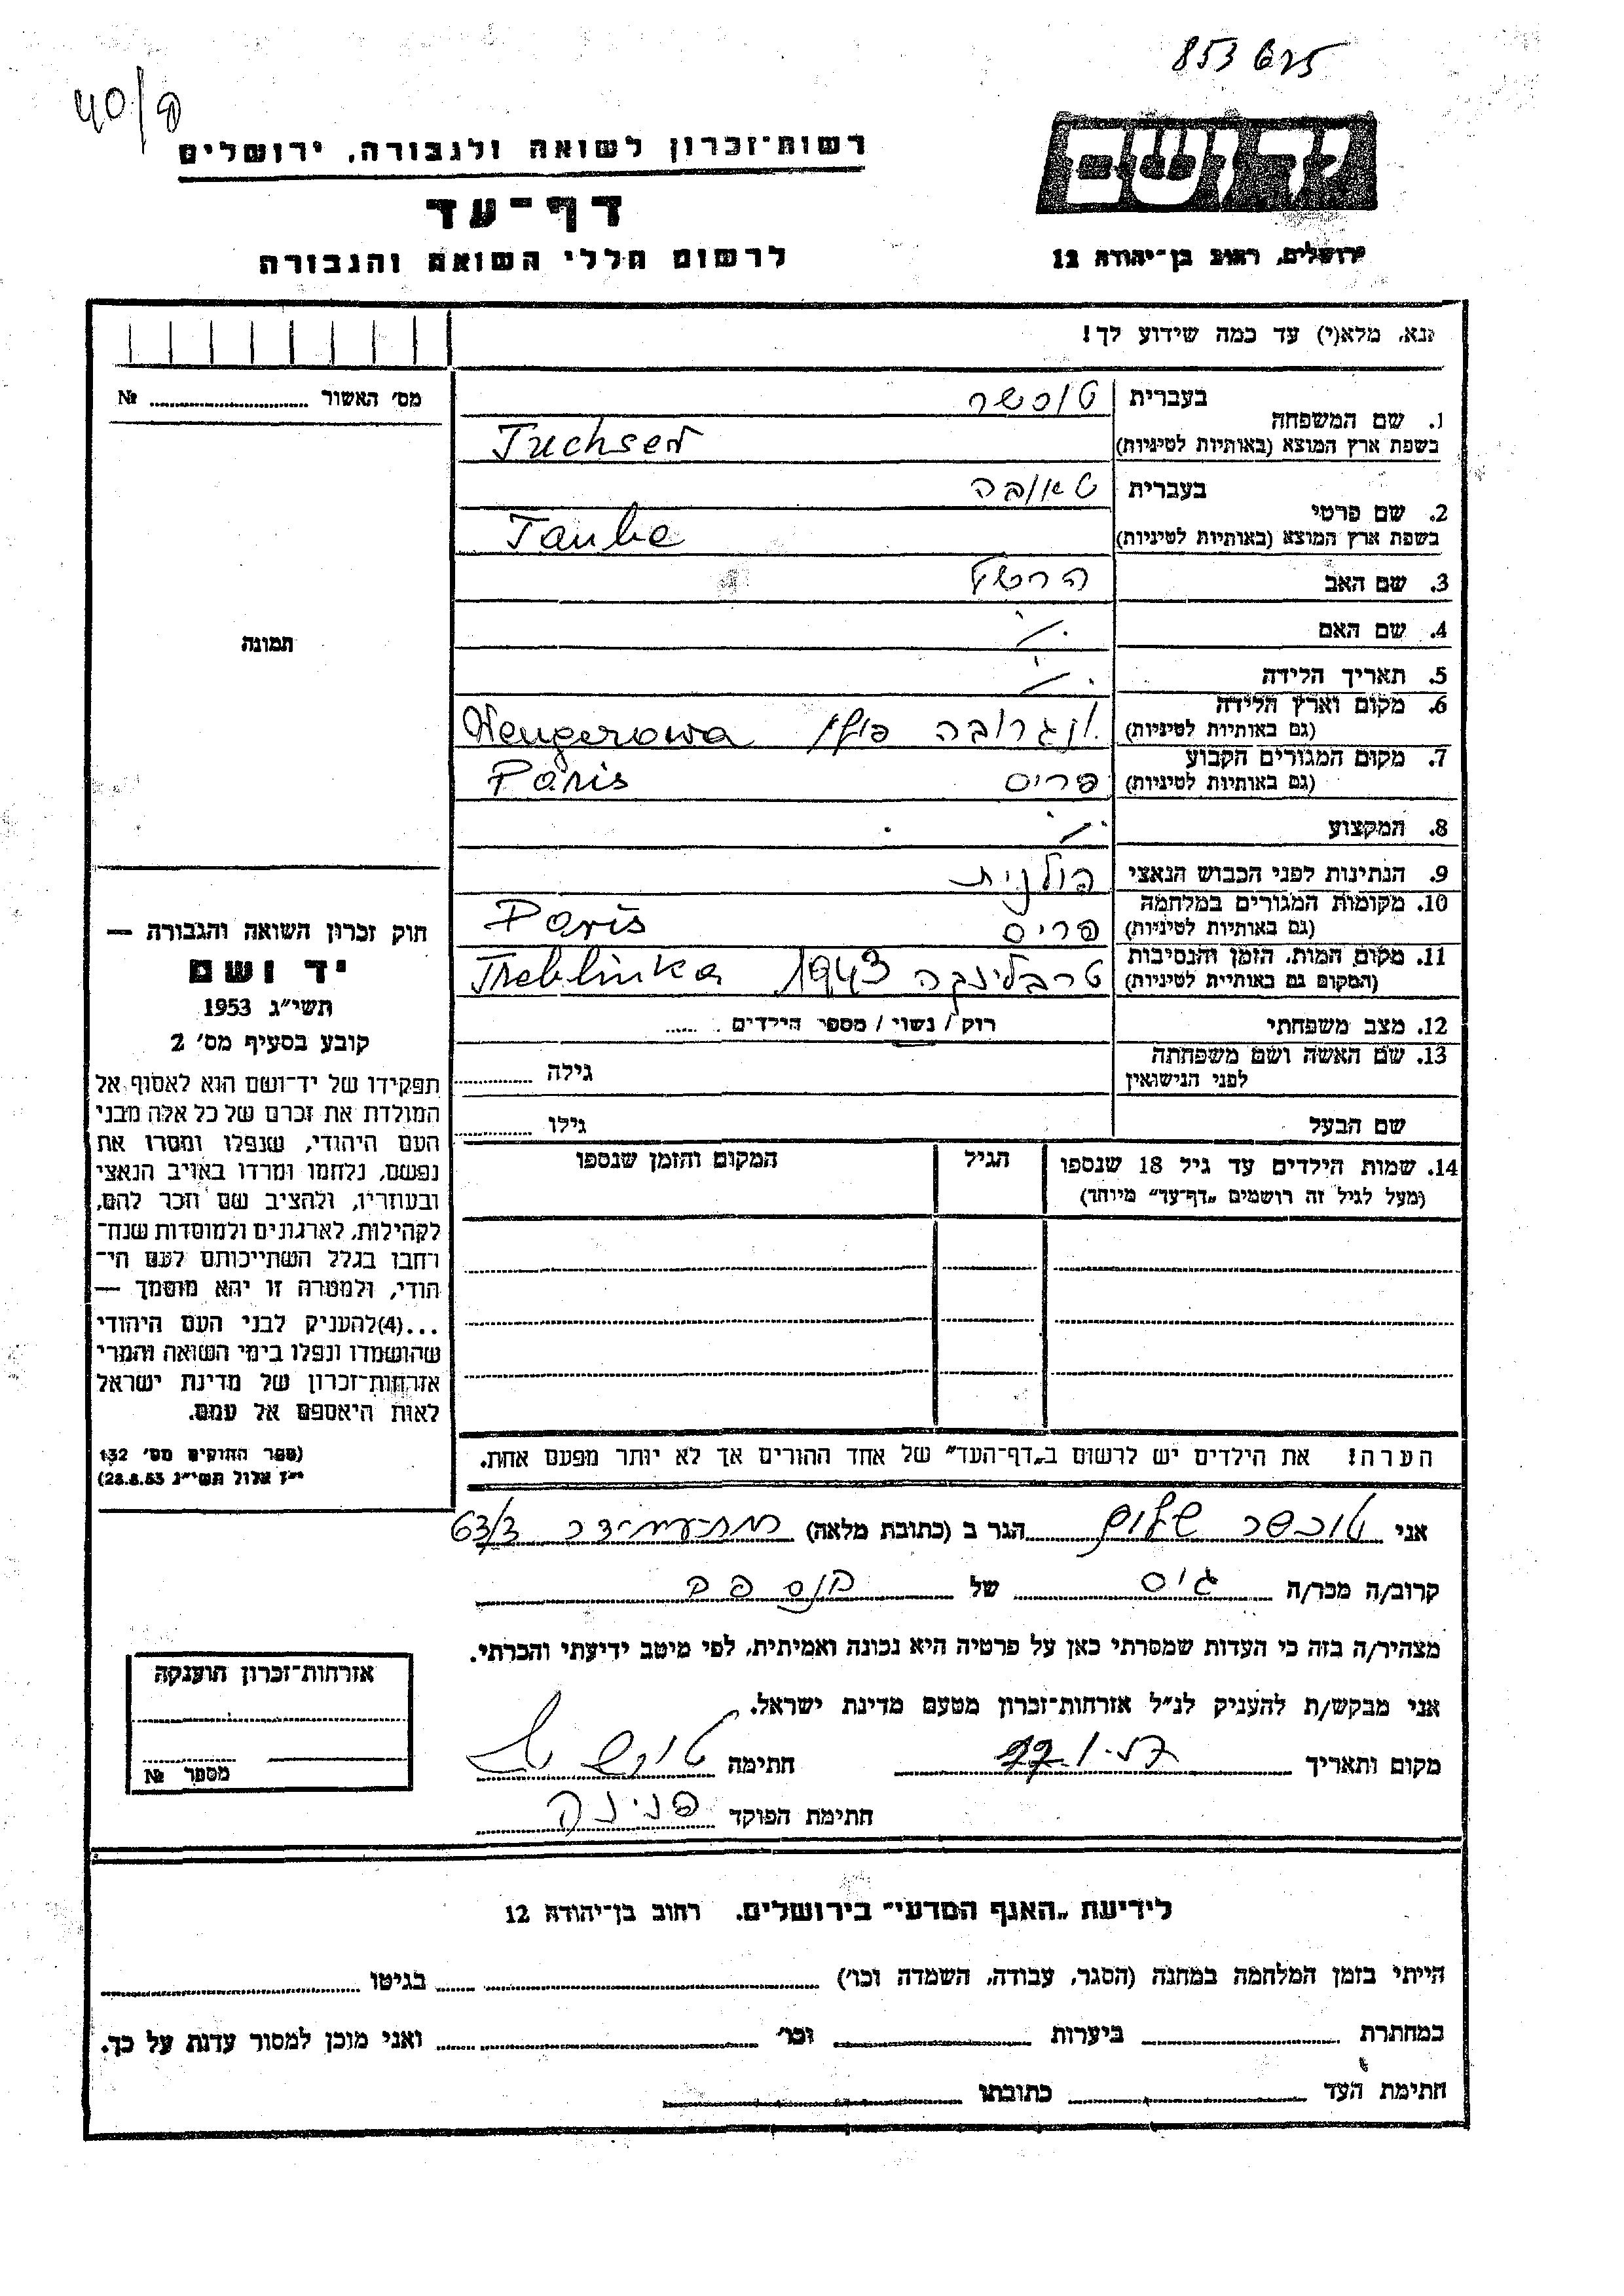 853625
40/פ
רשות־זכרון לשואה ולגבורה, ירושלים
יד ושם
דף־עד
לרשום חללי השואה והגבורה
ירושלים, רחוב בן־יהודה 12
נא, מלא(י) עד כמה שידוע לך!
מס׳ האשור № 
1. שם המשפחה
בעברית טוכשר
בשפת ארץ המוצא (באותיות לטיניות) Tuchser
2. שם פרטי
בעברית טאובה
בשפת ארץ המוצא (באותיות לטיניות) Taube
3. שם האב הרשל
4. שם האם
5. תאריך הלידה
6. מקום וארץ הלידה
(גם באותיות לטיניות) ונגרובה פולין Wengerowa
7. מקום המגורים הקבוע
(גם באותיות לטיניות) פריס Paris
8. המקצוע
9. הנתינות לפני הכבוש הנאצי פולנית
10. מקומות המגורים במלחמה
(גם באותיות לטיניות) פריס Paris
11. מקום המות, הזמן והנסיבות
(המקום גם באותיות לטיניות) טרבלינקה 1943 Treblinka
12. מצב משפחתי רווק / נשוי / מספר הילדים
13. שם האשה ושם משפחתה
לפני הנישואין גילה
שם הבעל גילו
14. שמות הילדים עד גיל 18 שנספו הגיל המקום והזמן שנספו
(מעל לגיל זה רושמים „דף־עד” מיוחד)
הערה! את הילדים יש לרשום ב„דף־העד” של אחד ההורים אך לא יותר מפעם אחת.
תמונה
חוק זכרון השואה והגבורה —
יד ושם
תשי״ג 1953
קובע בסעיף מס׳ 2
תפקידו של יד־ושם הוא לאסוף אל
המולדת את זכרם של כל אלה מבני
העם היהודי, שנפלו ומסרו את
נפשם, נלחמו ומרדו באויב הנאצי
ובעוזריו, ולהציב שם וזכר להם,
לקהילות, לארגונים ולמוסדות שנח־
רבו בגלל השתייכותם לעם הי־
הודי, ולמטרה זו יהא מוסמך —
...(4)להעניק לבני העם היהודי
שהושמדו ונפלו בימי השואה והמרי
אזרחות־זכרון של מדינת ישראל
לאות היאספם אל עמם.
(ספר החוקים מס׳ 132
י״ז אלול תשי״ג 28.8.53)
אני טוכשר שלום הגר ב (כתובת מלאה) 63/3
קרוב/ה מכר/ה גיס של
מצהיר/ה בזה כי העדות שמסרתי כאן על פרטיה היא נכונה ואמיתית, לפי מיטב ידיעתי והכרתי.
אני מבקש/ת להעניק לנ״ל אזרחות־זכרון מטעם מדינת ישראל.
מקום ותאריך חתימה
חתימת הפוקד פנינה
אזרחות־זכרון הוענקה
מספר №
לידיעת „האגף המדעי” בירושלים. רחוב בן־יהודה 12
הייתי בזמן המלחמה במחנה (הסגר, עבודה, השמדה וכו׳) בגיטו
במחתרת ביערות וכו׳ ואני מוכן למסור עדות על כך.
חתימת העד כתובתו